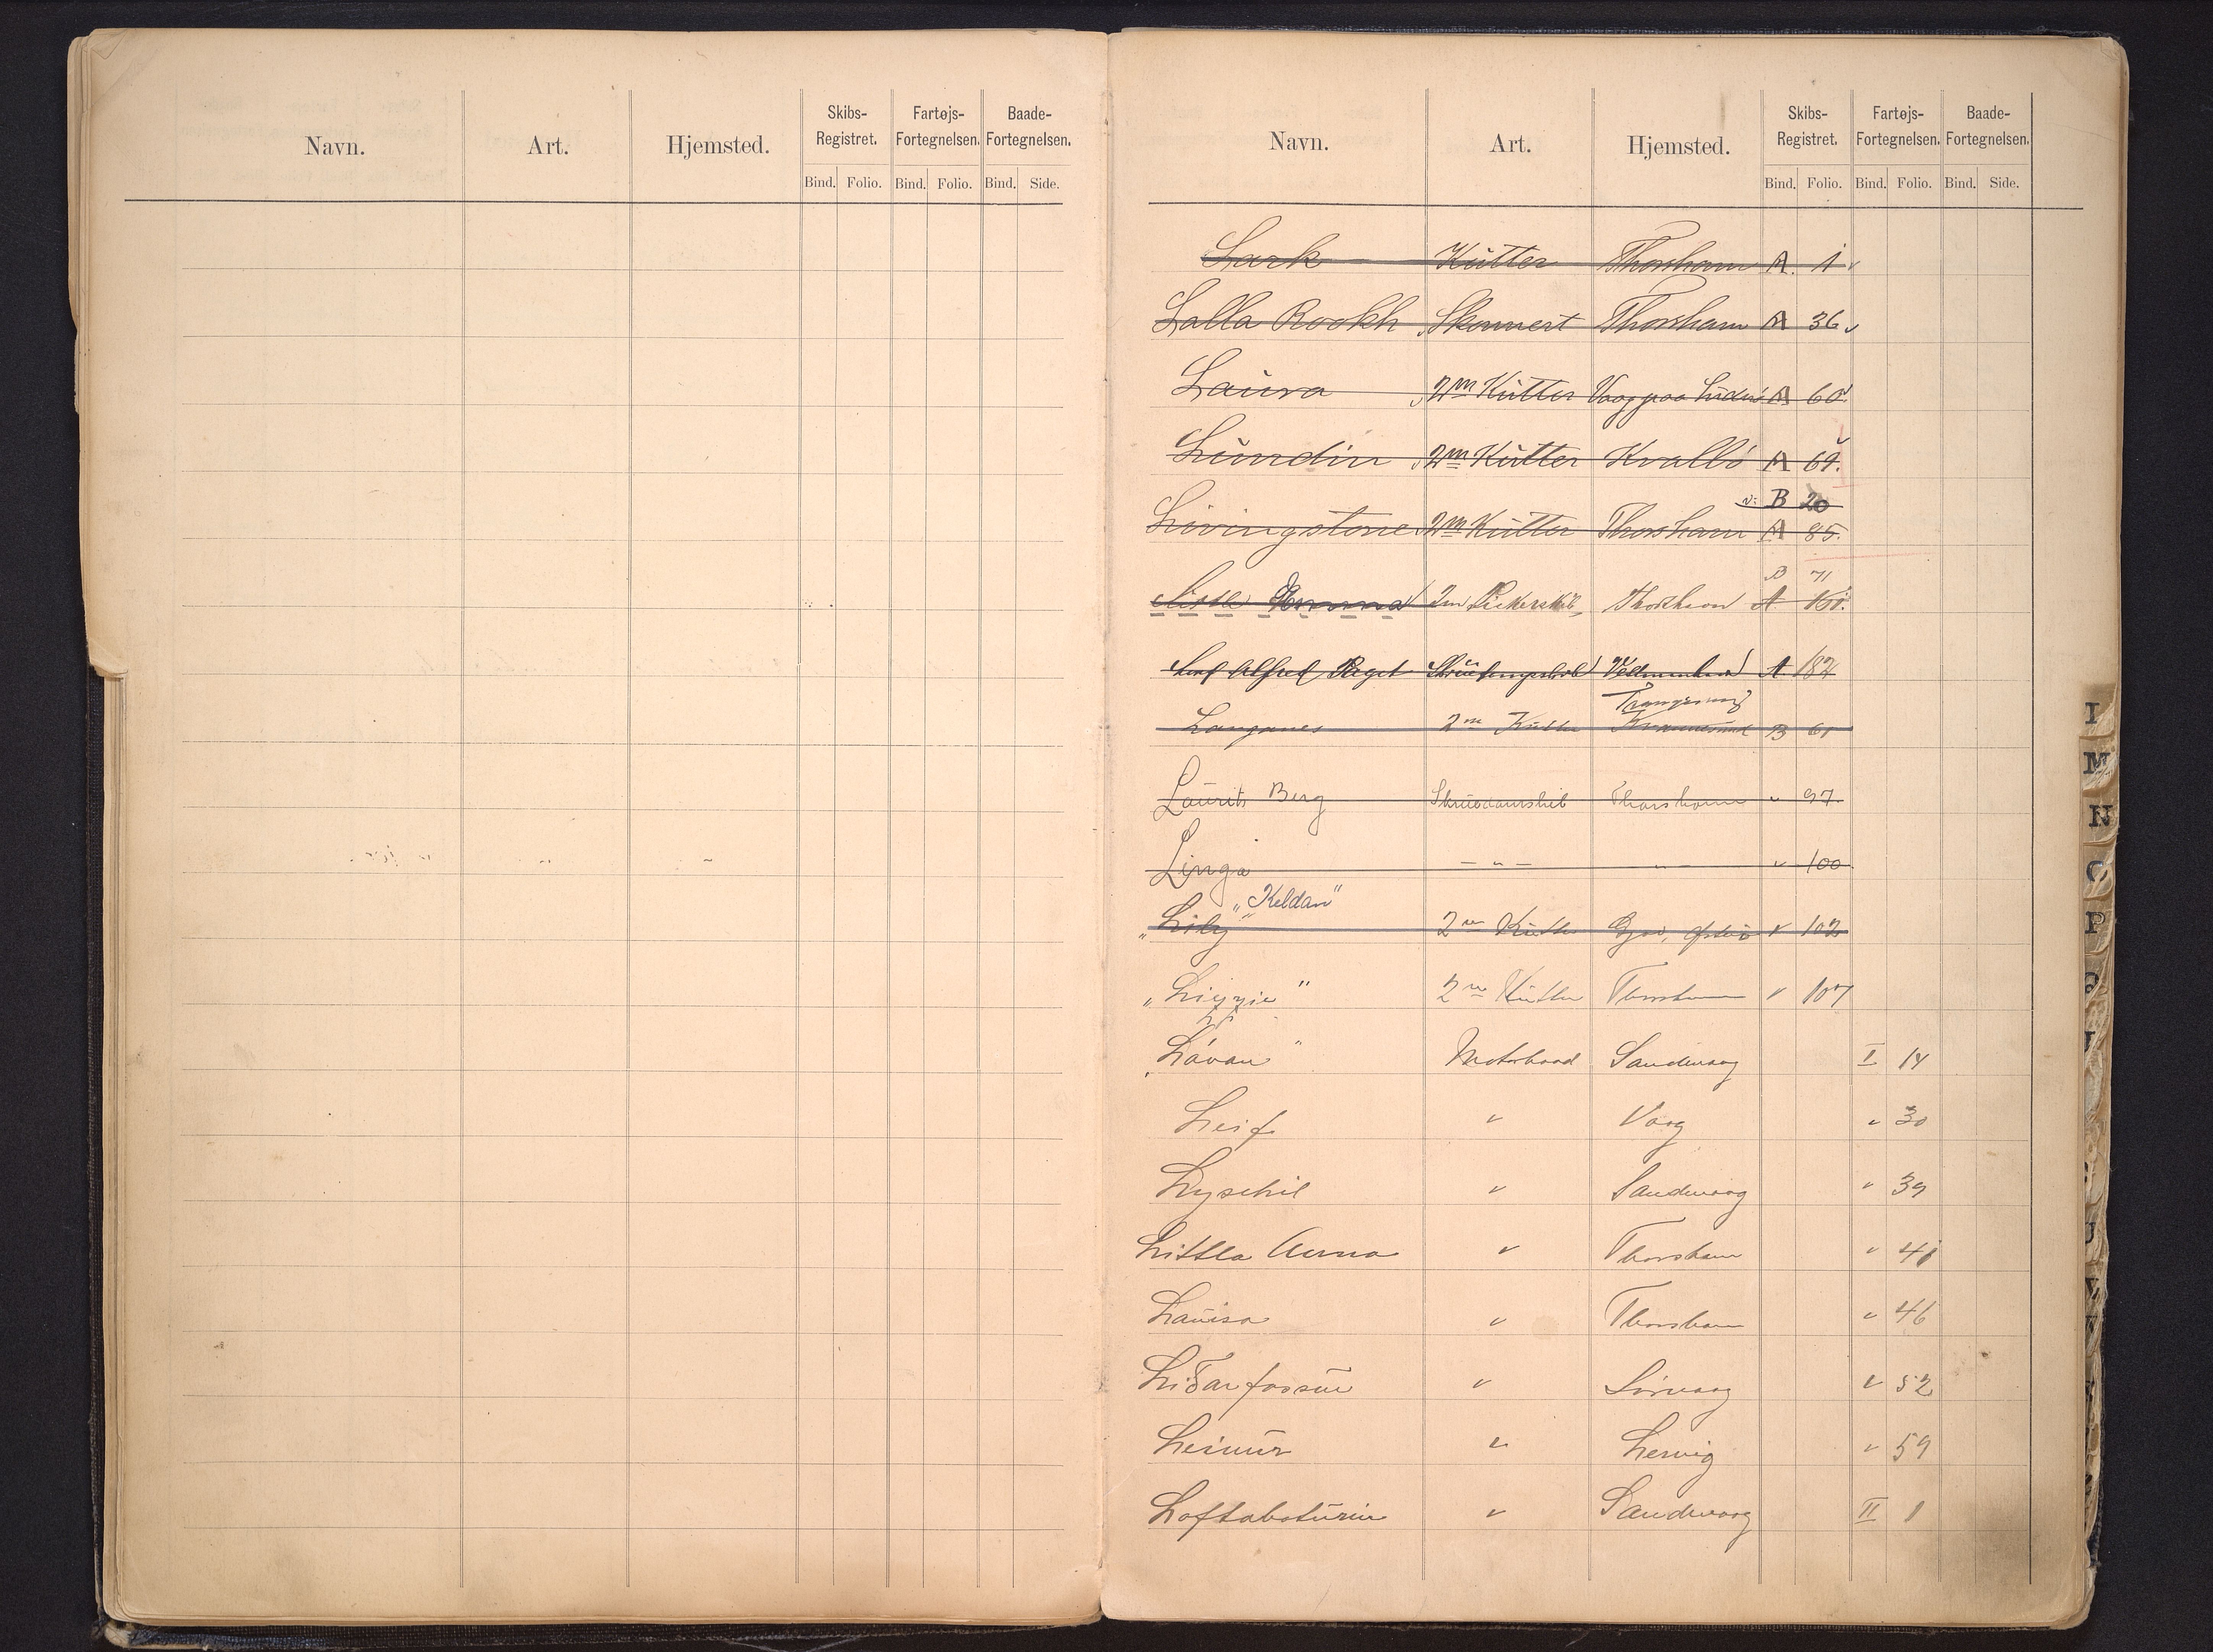 Navn. Art. Hjemsted. Skibs-Registret. Fartøjs-Fortegnelsen. Baade-Fortegnelsen.
Bind. Folio. Bind. Folio. Bind. Side.
Navn. Art. Hjemsted. Skibs-Registret. Fartøjs-Fortegnelsen. Baade-Fortegnelsen.
Bind. Folio. Bind. Folio. Bind. Side.
Lark Kutter Thorshavn A. 1
Lalla Rookh Skonnert Thorshavn A 36
Laura 2m Kutter Vaag paa Suderø A 60
Lundin 2m Kutter Kvalbø A 69.
B 20
Livingstone 2m Kutter Thorshavn A 85.
B 71
2m Thorshavn A
Lord Alfred Paget Vestmanhavn A 182
Trangisvaag
Langanes 2m Kutter B 61
Laurits Berg Thorshavn " 97.
Linga - " - " " 100
"Keldan"
"Lily" 2m Kutter " 102
"Lizzie" 2m Kutter Thorshavn " 107
zz
"Lávan" Motorbaad Sandevaag I 14
Leif " Vaag " 30
Lyschil " Sandevaag " 39
Littla Anna " Thorshavn " 41
Lauisa " Thorshavn " 46
Liðarfossur " Sørvaag " 52
Leimur " Lervig " 59
Loftaboturin " Sandevaag II 1
I
M
N
O
P